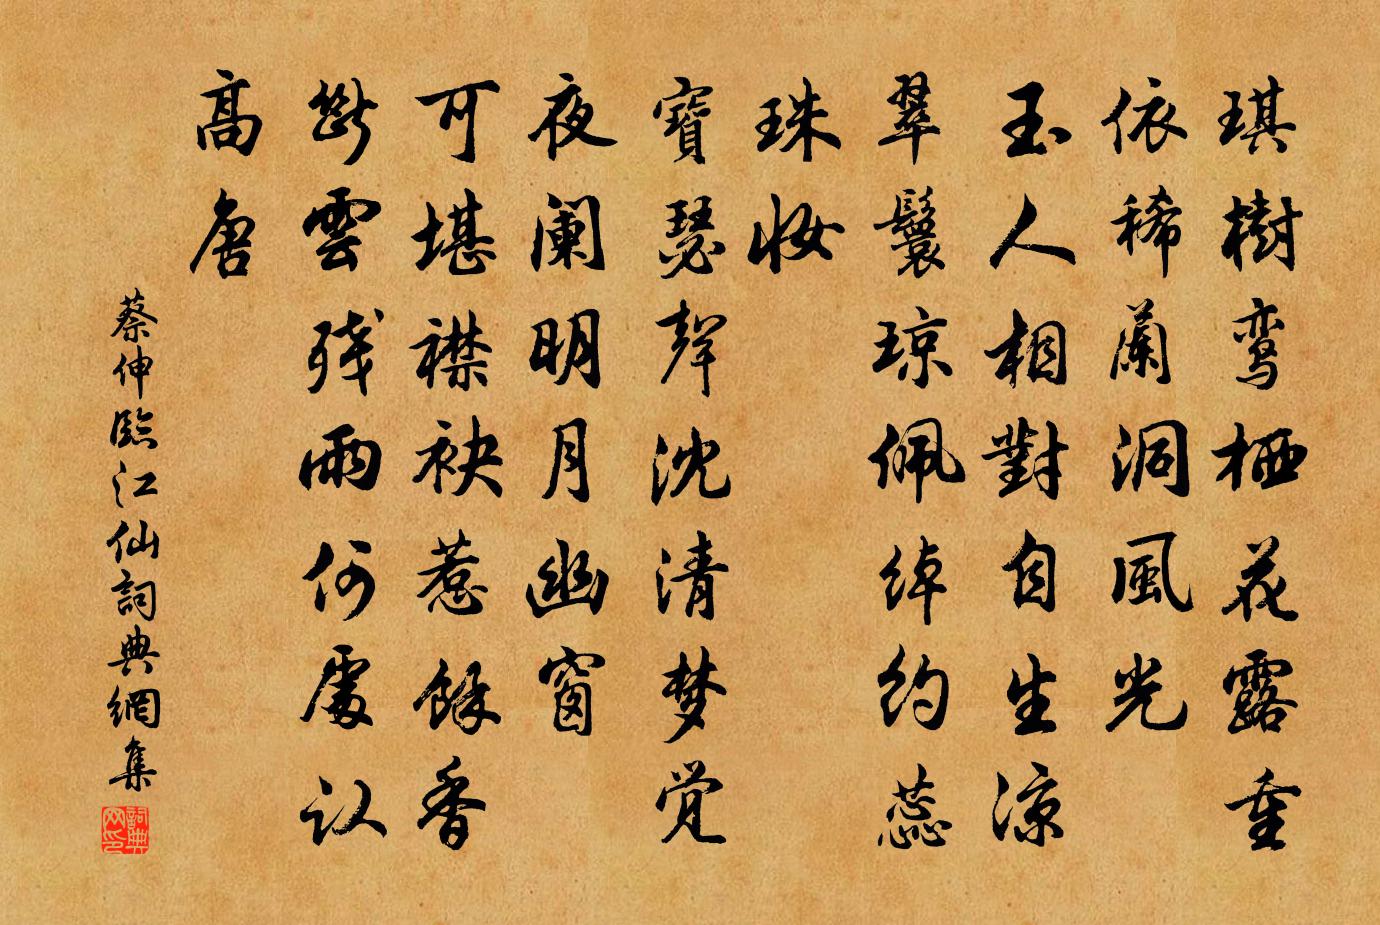 琪樹鸾栖花露重
依稀蘭洞風光
玉人相對自生涼
翠鬟琼佩绰约蕊
珠妆
寶瑟聲沈清梦觉
夜阑明月幽窗
可堪襟袂惹餘香
断雲残雨何處认
高唐
蔡伸臨江仙詞典網集
詞典网印